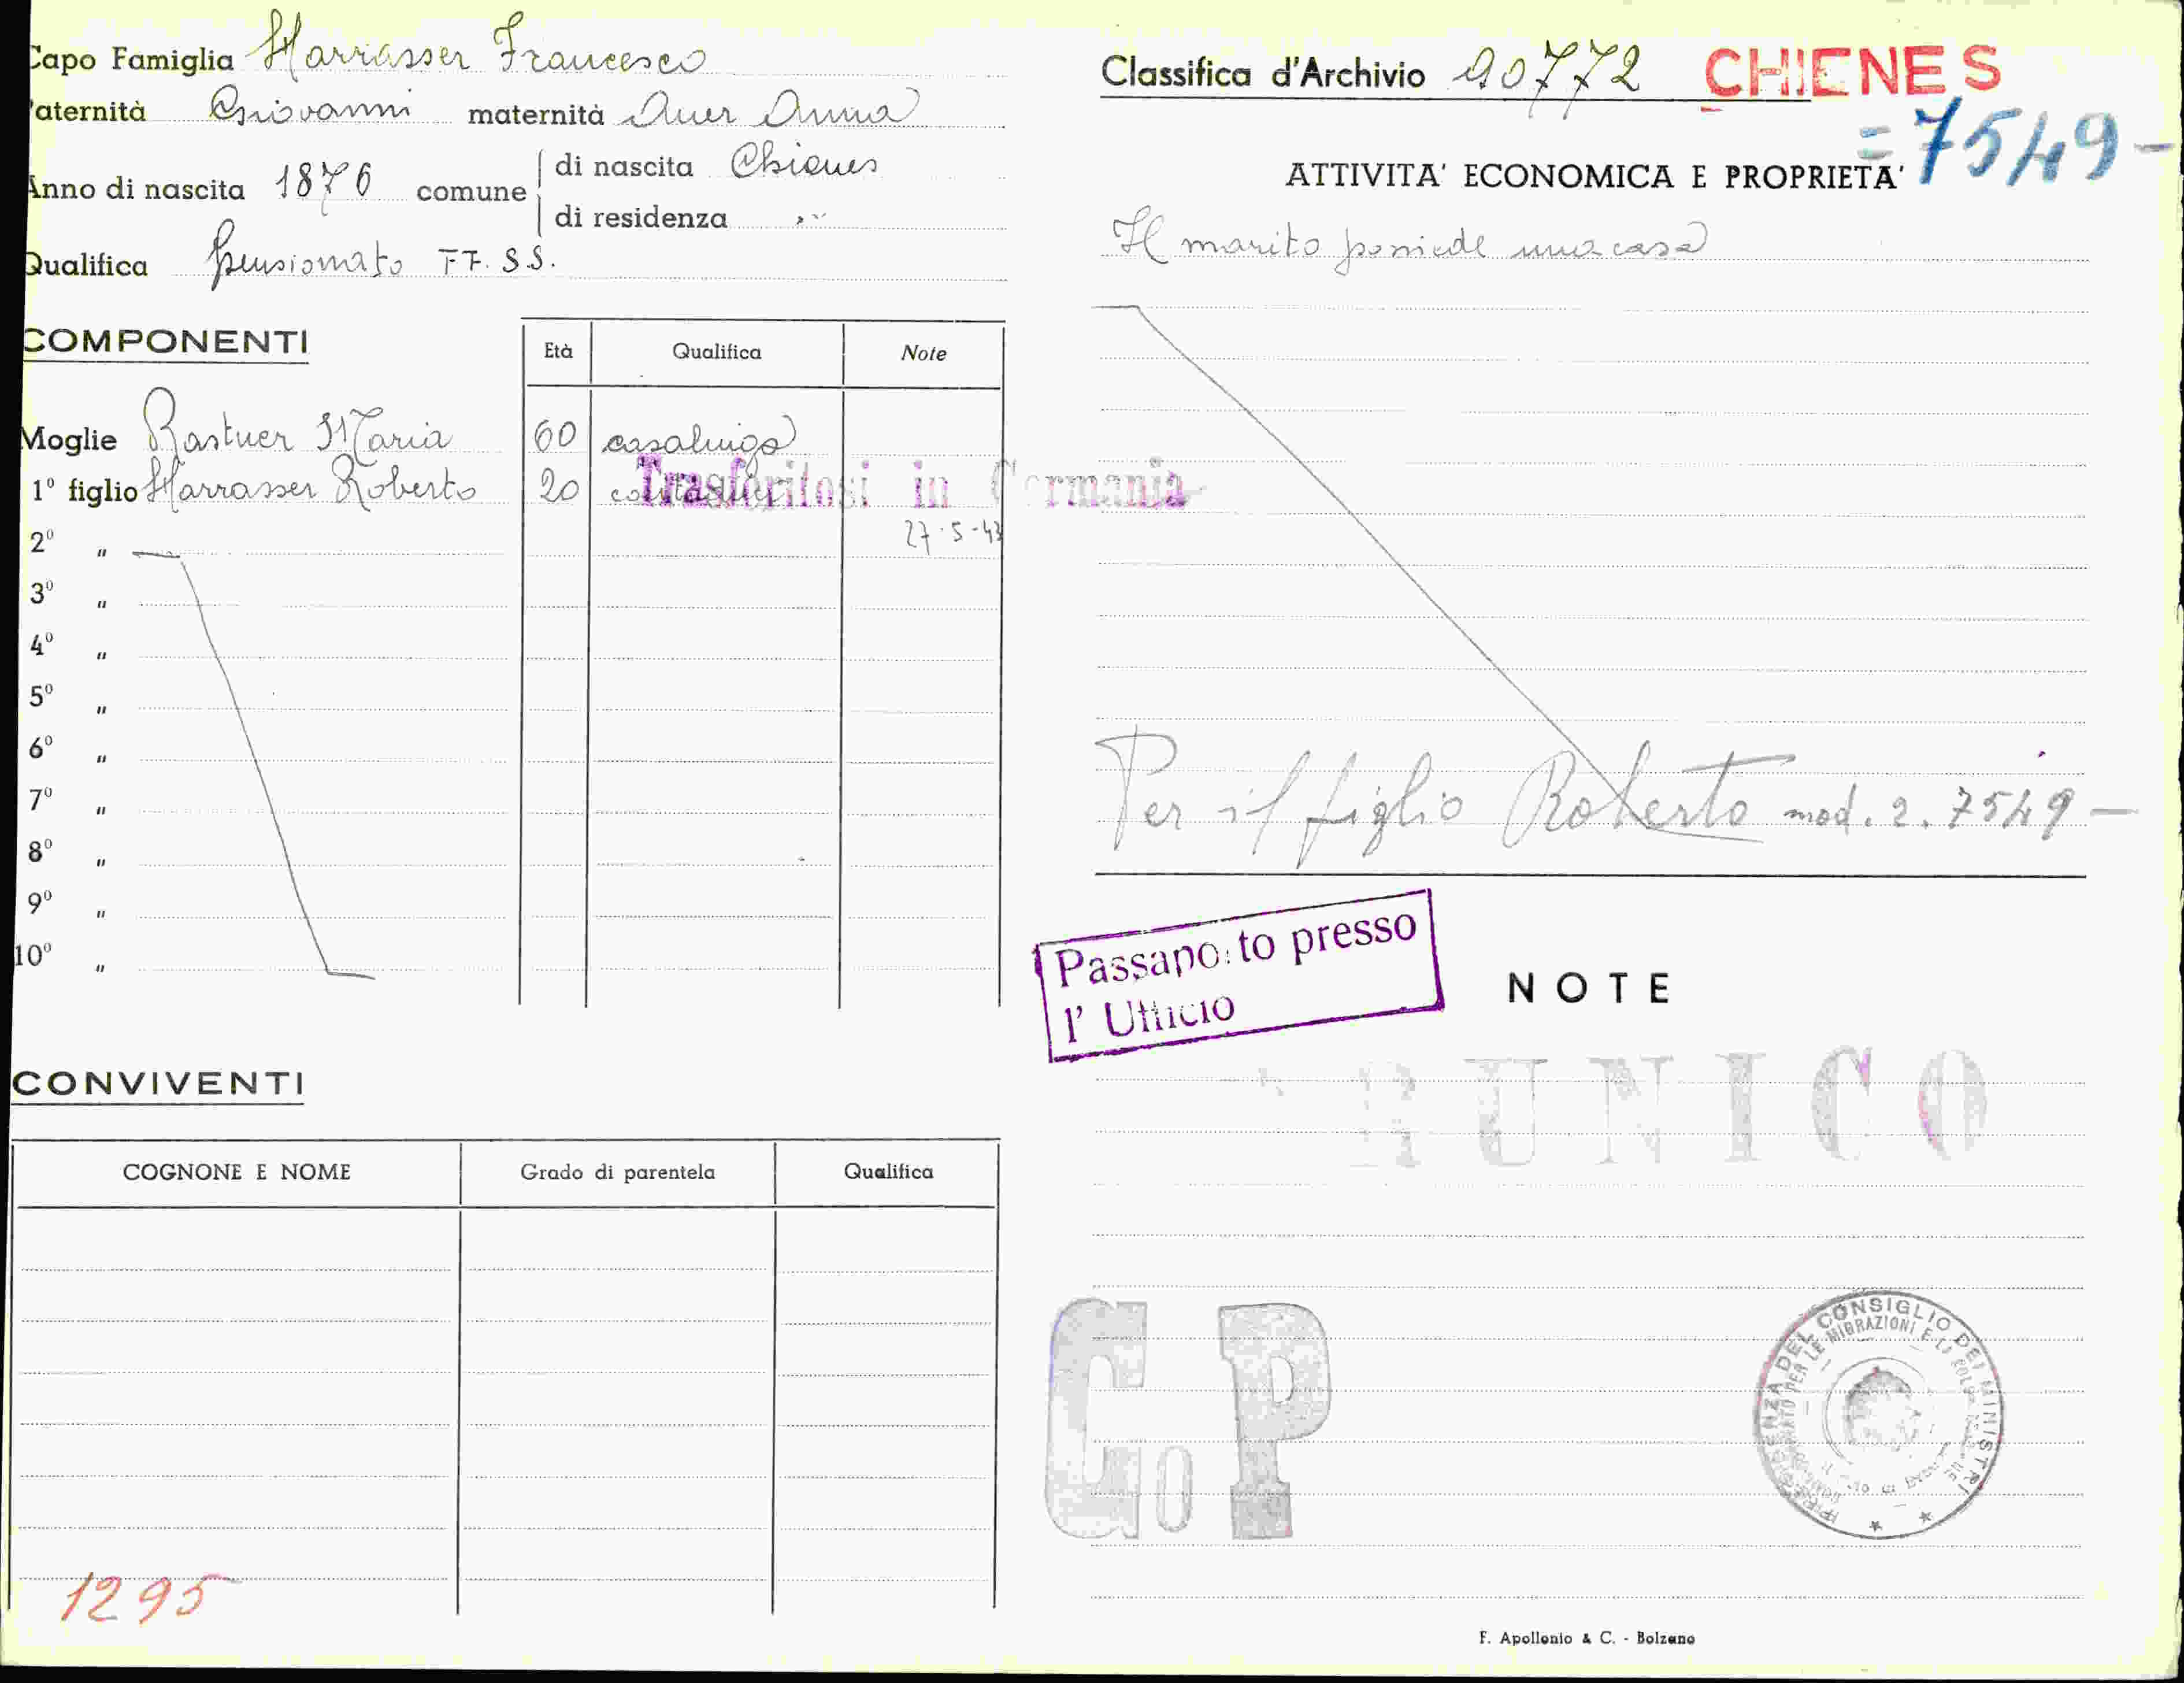 Capo Famiglia Harrasser Francesco
Paternità Giovanni maternità Auer Anna
Anno di nascita 1876 comune di nascita Chienes
di residenza "
Qualifica pensionato FF. SS.
COMPONENTI
Età Qualifica Note
Moglie Rastner Maria 60 casalinga
1° figlio Harrasser Roberto 20
Trasferitosi in Germania
27-5-43
2° "
3° "
4° "
5° "
6° "
7° "
8° "
9° "
10° "
CONVIVENTI
COGNONE E NOME Grado di parentela Qualifica
1295
Classifica d'Archivio 90772 CHIENES
=7549-
ATTIVITA' ECONOMICA E PROPRIETA'
Il marito possiede una casa
Per il figlio Roberto mod. 2. 7549-
Passaporto presso
l' Ufficio
NOTE
BRUNICO
GoP
PRESIDENZA DEL CONSIGLIO DEI MINISTRI
F. Apollonio & C. - Bolzano